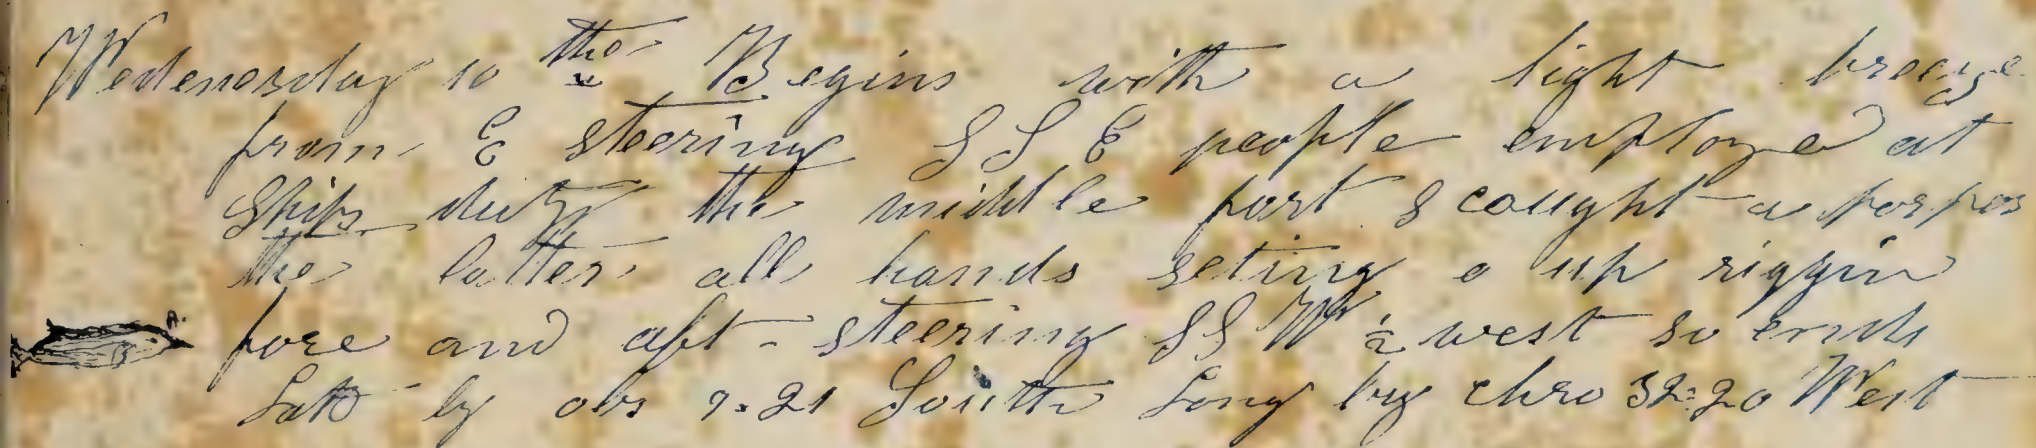 Wedenesday 10 the Begins with a light breeze
from E steering S S E people employed at
Ships duty the middle part & caught a porpos
the latter all hands seting up riggin
fore and aft - steering S S W 1/2 west so ends
Latt by obs 9.21 South Long by chro 32=20 West